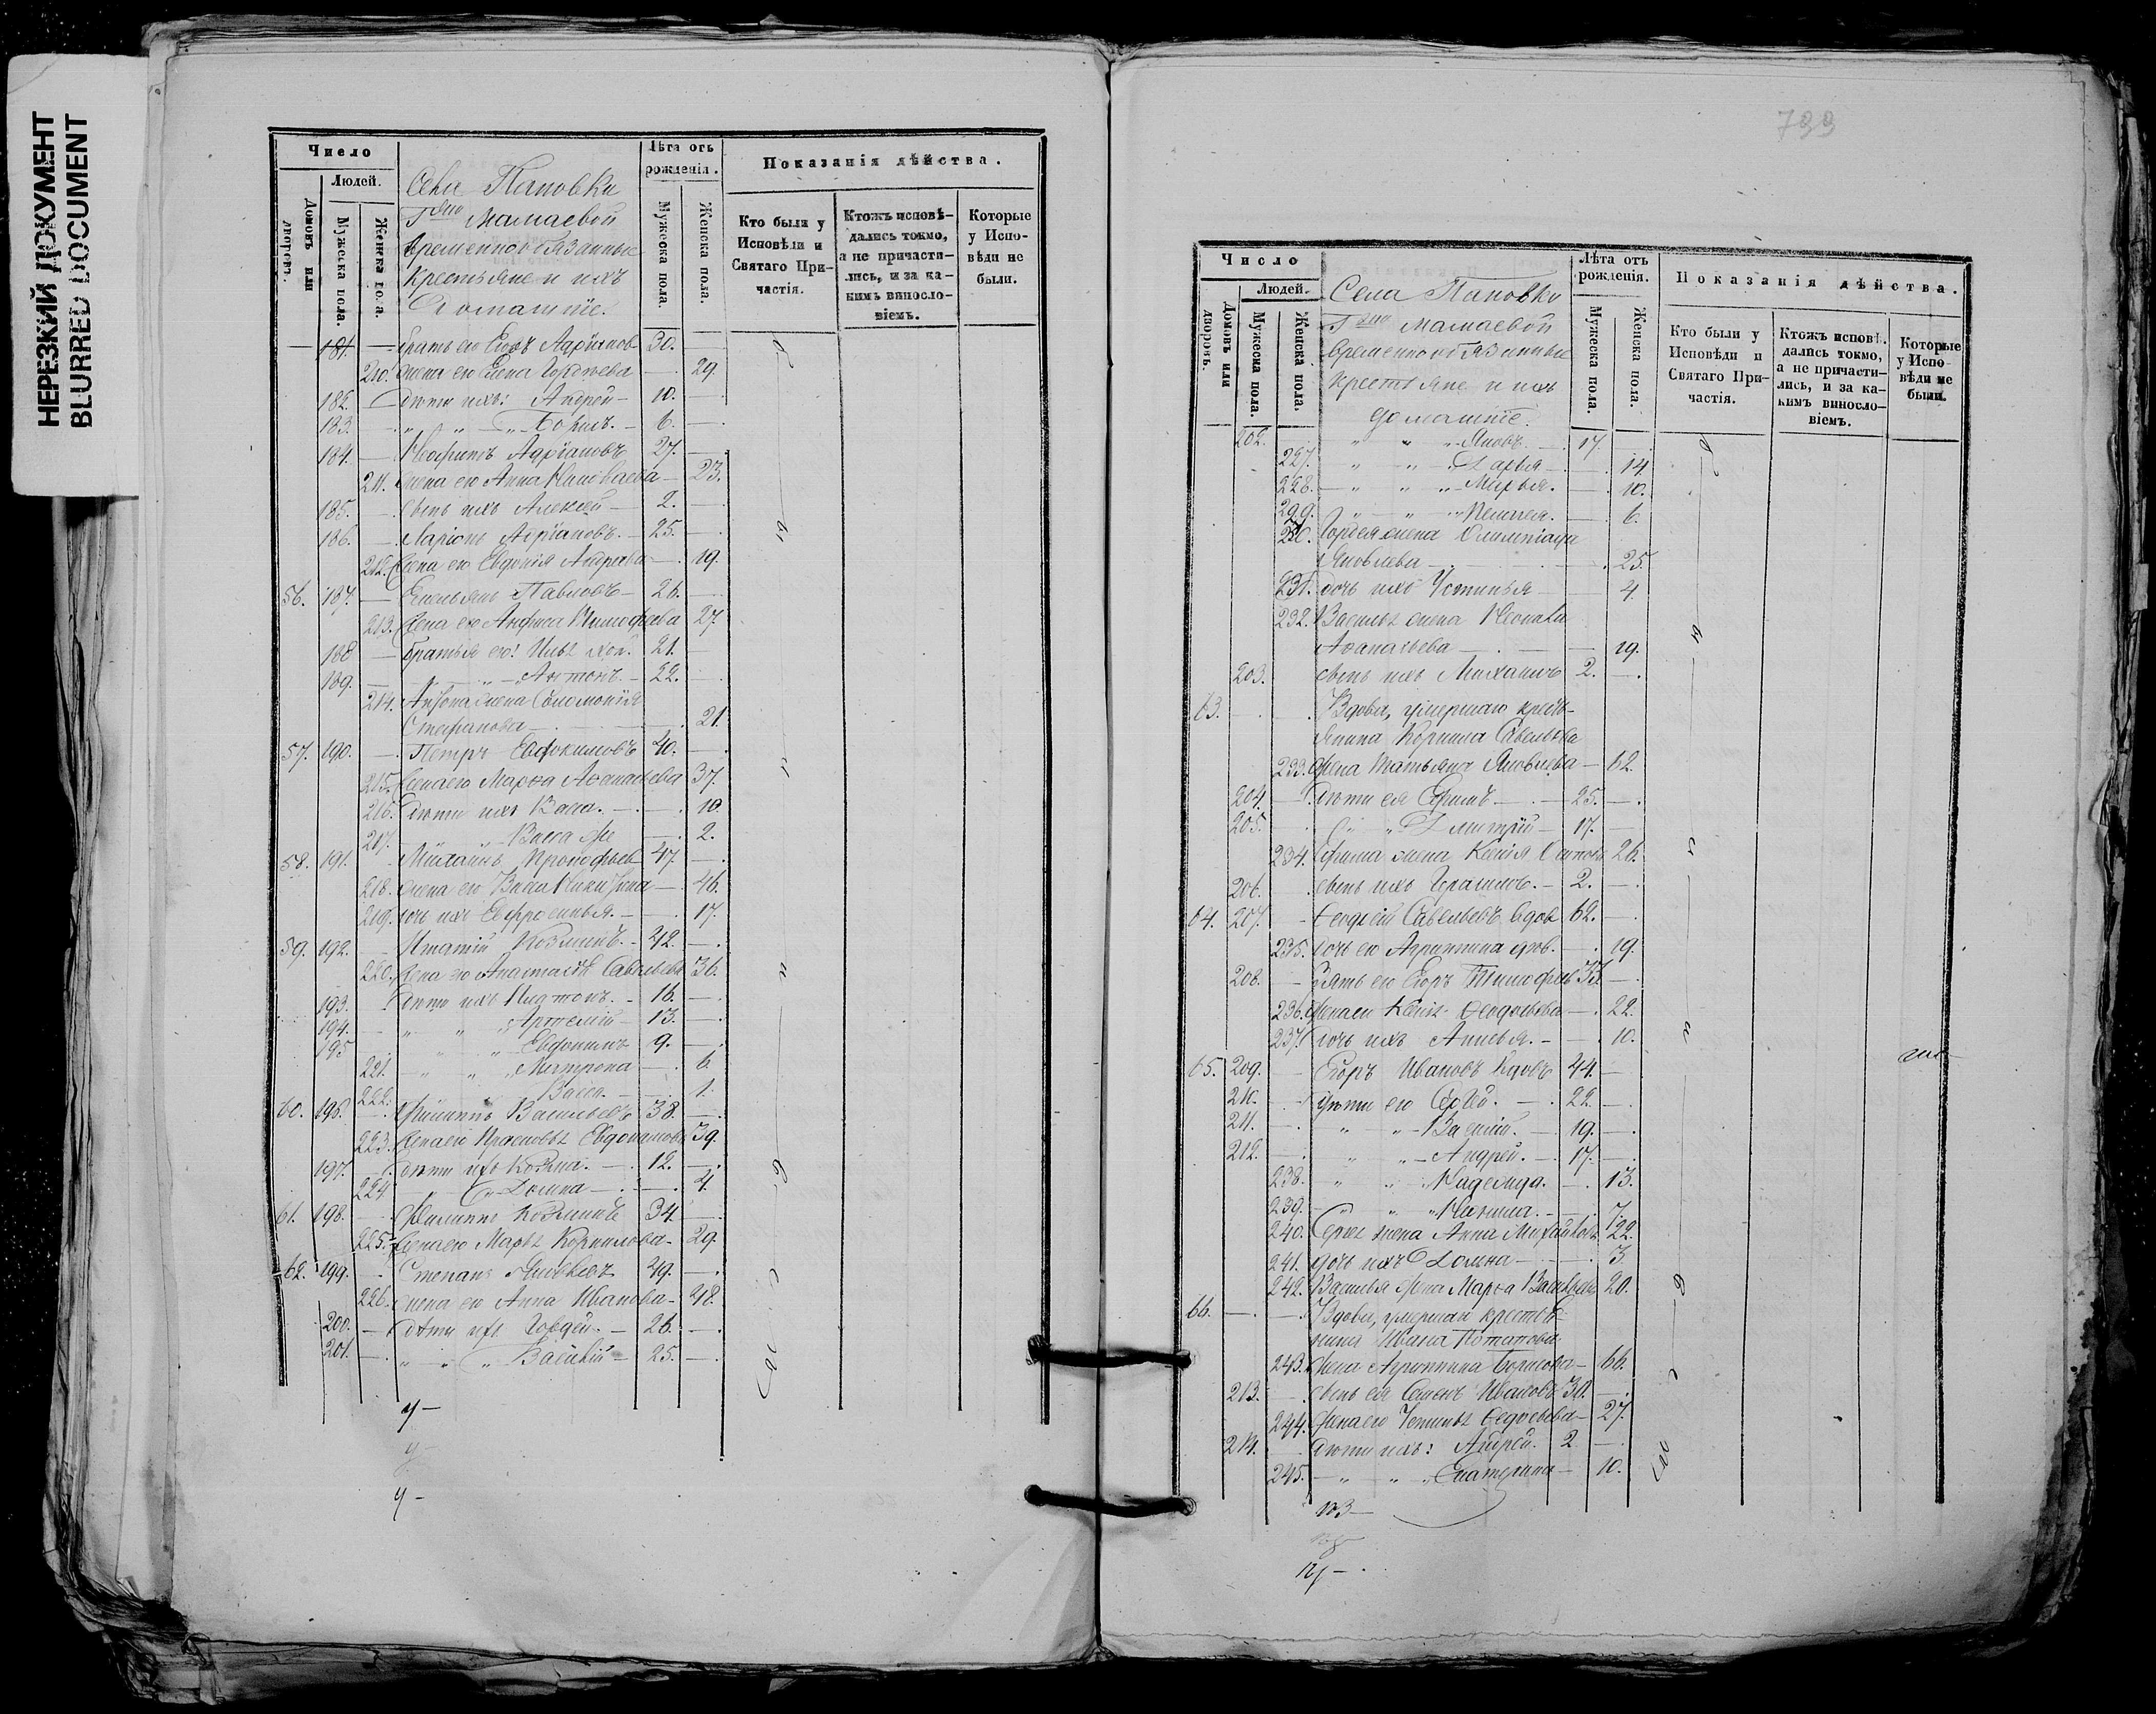 НЕРЕЗКИЙ ДОКУМЕНТ
BLURRED DOCUMENT
Число
Людей.
Домовъ или дворовъ.
Мужеска пола.
Женска пола.
Села Пановки
Г-жи Мамаевой
временнообязанные
крестьяне и ихъ
домашніе.
Лѣта отъ рожденія.
Мужеска пола.
Женска пола.
Показанія дѣйства.
Кто были у Исповѣди и Святаго При-частія.
Ктожъ исповѣ-дались токмо, а не причасти-лись, и за ка-кимъ винсло-віемъ.
Которые у Испо-вѣди не были.
181. братъ его Егоръ Адріановъ 30.
210. жена его Елена Гордѣева 29
182. дѣти ихъ: Андрей 10.
183. " " Борисъ. 6.
184. Адріановъ 27.
211. жена его Анна 23.
185. сынъ ихъ Алексѣй 2.
186. Ларіонъ Адріановъ. 25.
212. жена его Евдокія Андреева 19.
56. 187. Емельянъ Павловъ 26.
213. жена его Анфиса Тимофеева 27.
188 братья его: 21.
189. " Антонъ. 22.
214. Антона жена Соломонія
Стефанова 21
57. 190. Петръ Евдокимовъ 40.
215. жена его Марѳа Аѳанасьева 37.
216. дѣти ихъ Васса. 10.
217. " Васса же 2.
58. 191. Михаилъ Прокофьев 47.
218. жена его Васса Никитина 46.
219. дочь их Евфросинья. 17.
59. 192. Игнатій Козминъ. 42.
220. жена его Анастасія Савельева 36.
193. дѣти ихъ Платонъ. 16.
194. " " Артемій 13.
195 " Евдокимъ 9.
221. " " Матрона 6.
222. Васса. 1.
60. 196. Филиппъ Васильевъ 38.
223. жена его Прасковья Евдокимова 39.
197. дѣти ихъ Козма. 12.
224 " Домна 4.
61. 198. Филиппъ Козминъ 34.
225. жена его Марья Корнилова 29
62. 199. Степанъ Яковлевъ 49.
226. жена его Анна Иванова 48.
200. дѣти ихъ Гордей. 26.
201. " " Василій 25.
799
Число
Людей.
Домовъ или дворовъ.
Мужеска пола.
Женска пола.
Села Пановки
Г-жи Мамаевой
временнообязанные
крестьяне и ихъ
домашніе.
Лѣта отъ рожденія.
Мужеска пола.
Женска пола.
Показанія дѣйства.
Кто были у Исповѣди и Святаго При-частія.
Ктожъ исповѣ-дались токмо, а не причасти-лись, и за ка-кимъ винсло-віемъ.
Которые у Испо-вѣди не были.
202. " " Яковъ. 17.
227. " " Дарья 14
228. " " Марья. 10.
229. " " Пелагея. 6.
230. Гордея жена Олимпіада
Яковлева 25.
231. дочь ихъ Устинья 4
232. Василья жена
Аѳанасьева 19.
203. сынъ ихъ Михаилъ 2.
63. Вдова, умершаго кресть-
янина Корнила Савельева
233. жена Татьяна Яковлева 62.
204. дѣти ея Ефимъ 25.
205. " Дмитрій 17.
234. Ефима жена Ксенія Осипова 26.
206. сынъ ихъ Герасимъ. 2.
64. 207. Савельевъ вдов 62.
235. дочь его Агриппина 19.
208. зять его Егоръ Тимофеев 33
236. жена его Ксенія 22.
237. дочь ихъ 10.
65. 209. Егоръ Ивановъ вдовъ 44.
210. дѣти его Сергѣй. 22.
211. " " Василій. 19.
212. " " Андрей. 17.
238. " " Надежда. 13.
239. " " 7.
240. Сергѣя жена Анна Михайлова 22.
241. дочь ихъ Домна 3.
242. Василья жена Марѳа Васильева 20.
66. Вдова, умершаго крестья-
нина Ивана Потапова
243. жена Агриппина Борисова 66.
213. сынъ ея Семенъ Ивановъ 30.
244. жена его Устинья 27.
214. дѣти ихъ: Андрей. 2
245. " " Екатерина 10.